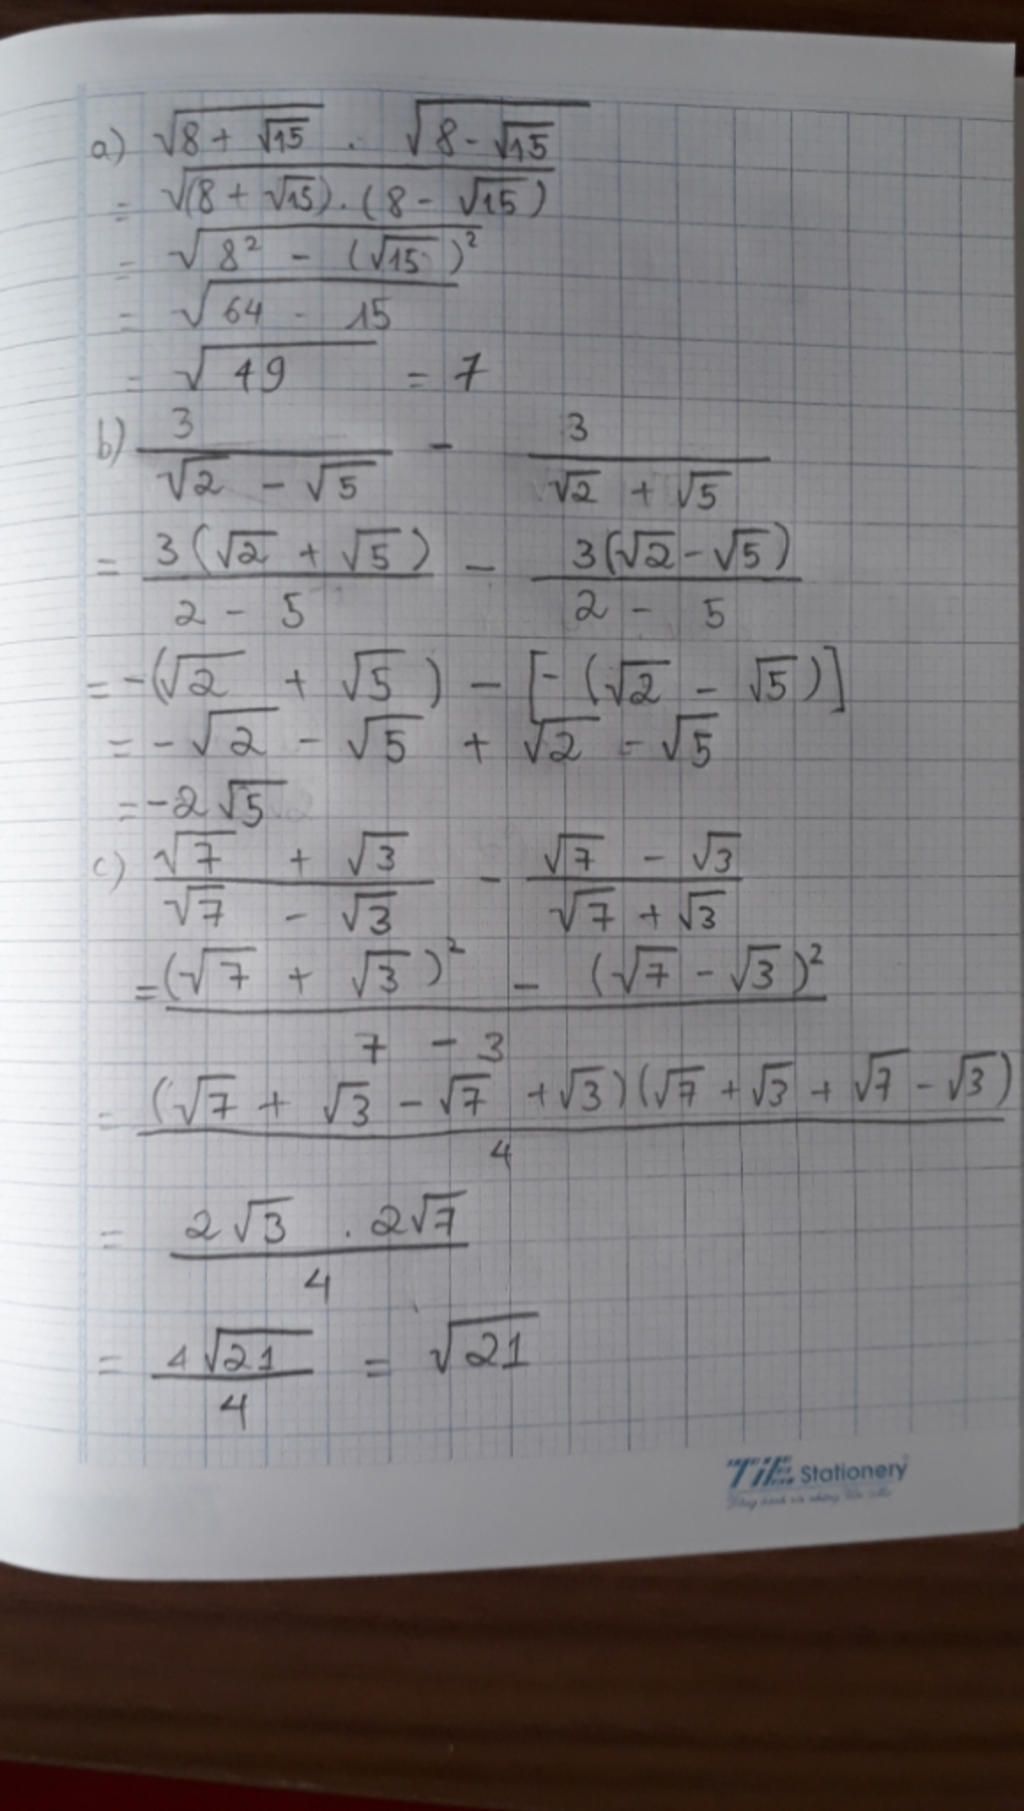 a) √(8 + √15) . √(8 - √15)
= √((8 + √15) . (8 - √15))
= √(8² - (√15)²)
= √(64 - 15)
= √49 = 7
b) 3/(√2 - √5) - 3/(√2 + √5)
= 3(√2 + √5)/(2 - 5) - 3(√2 - √5)/(2 - 5)
= -(√2 + √5) - [-(√2 - √5)]
= -√2 - √5 + √2 - √5
= -2√5
c) (√7 + √3)/(√7 - √3) - (√7 - √3)/(√7 + √3)
= ((√7 + √3)² - (√7 - √3)²)/(7 - 3)
= (√7 + √3 - √7 + √3)(√7 + √3 + √7 - √3)/4
= 2√3 . 2√7/4
= 4√21/4 = √21
TiE Stationery